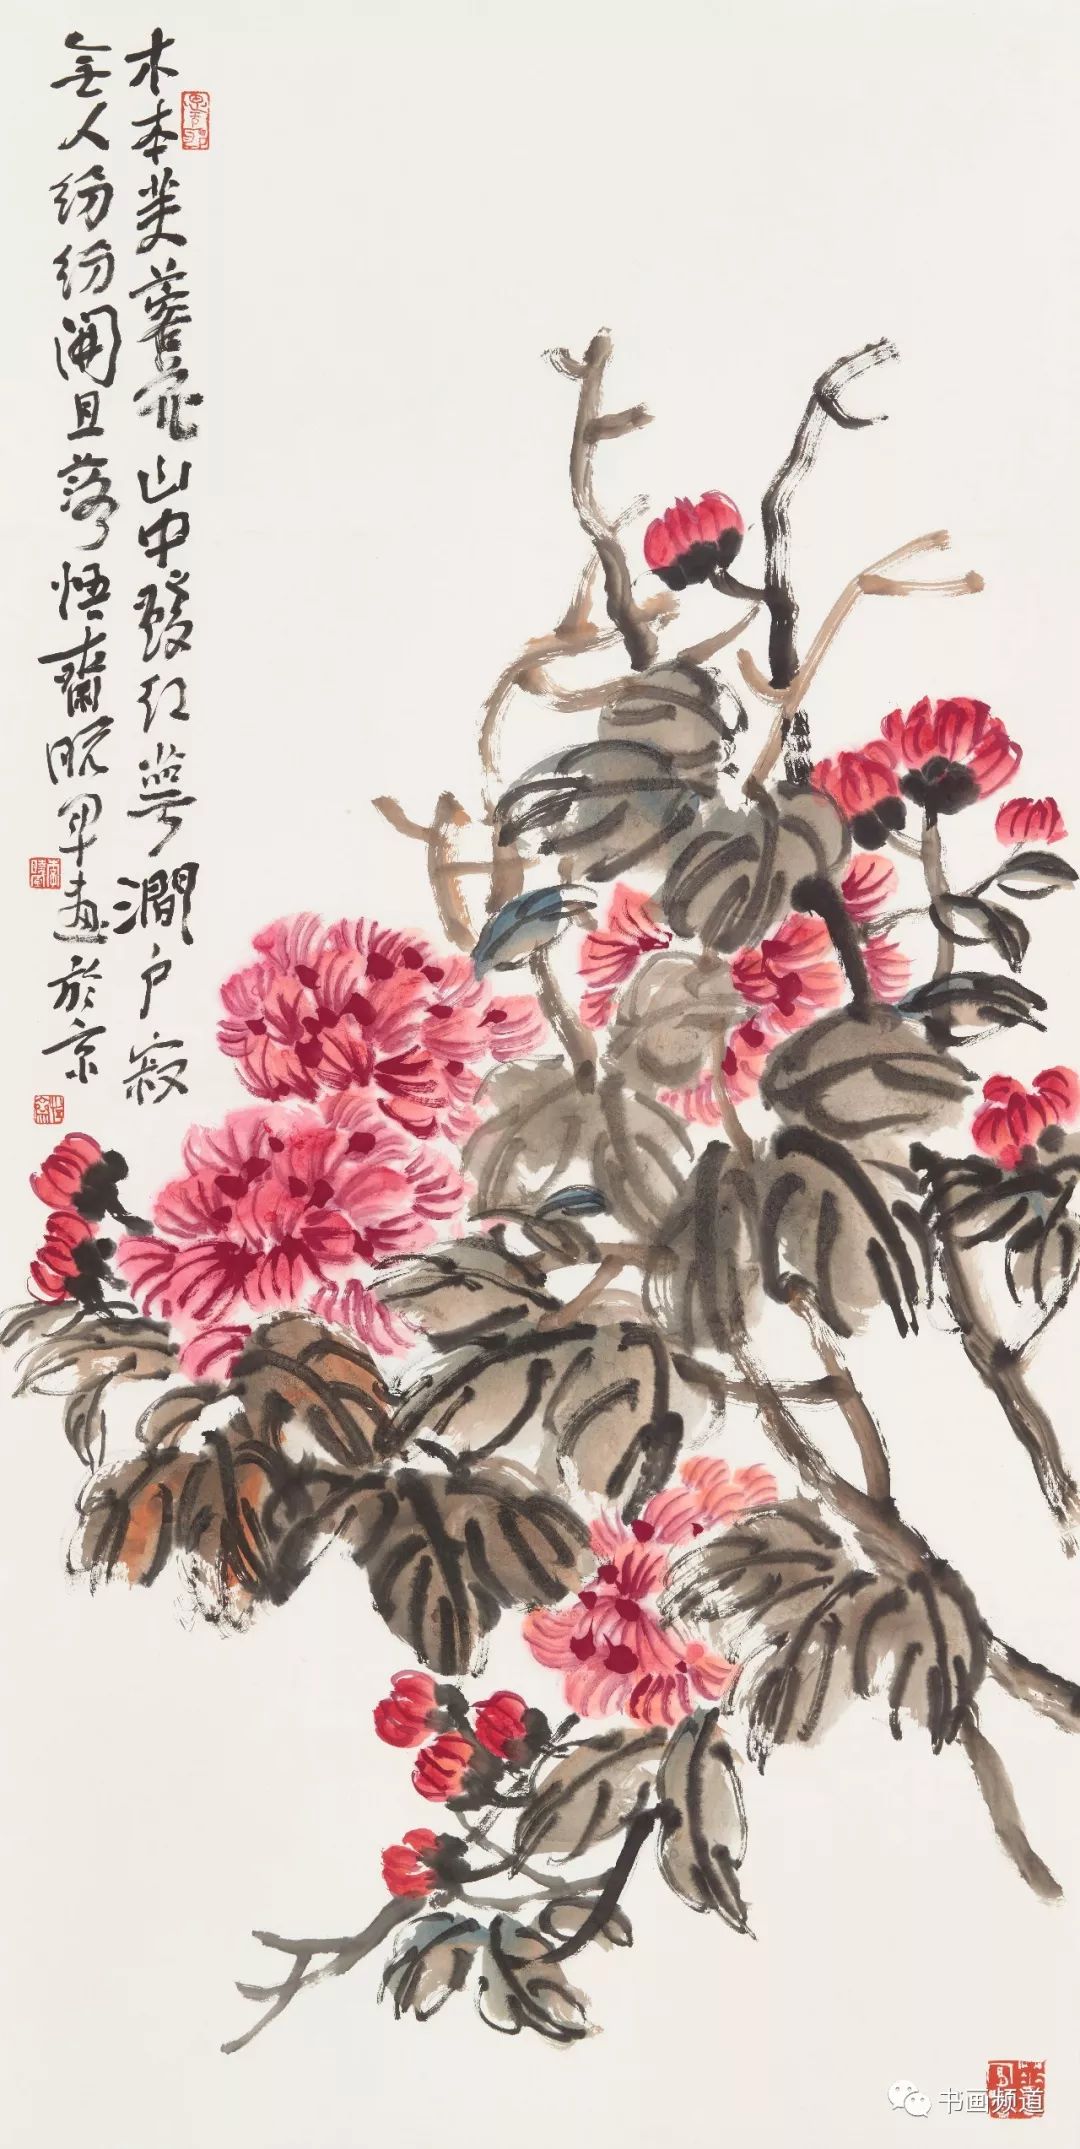 木本芙蓉花山中發红萼澗户寂
无人纷纷開且落悟齋晓军畫於京
书画频道